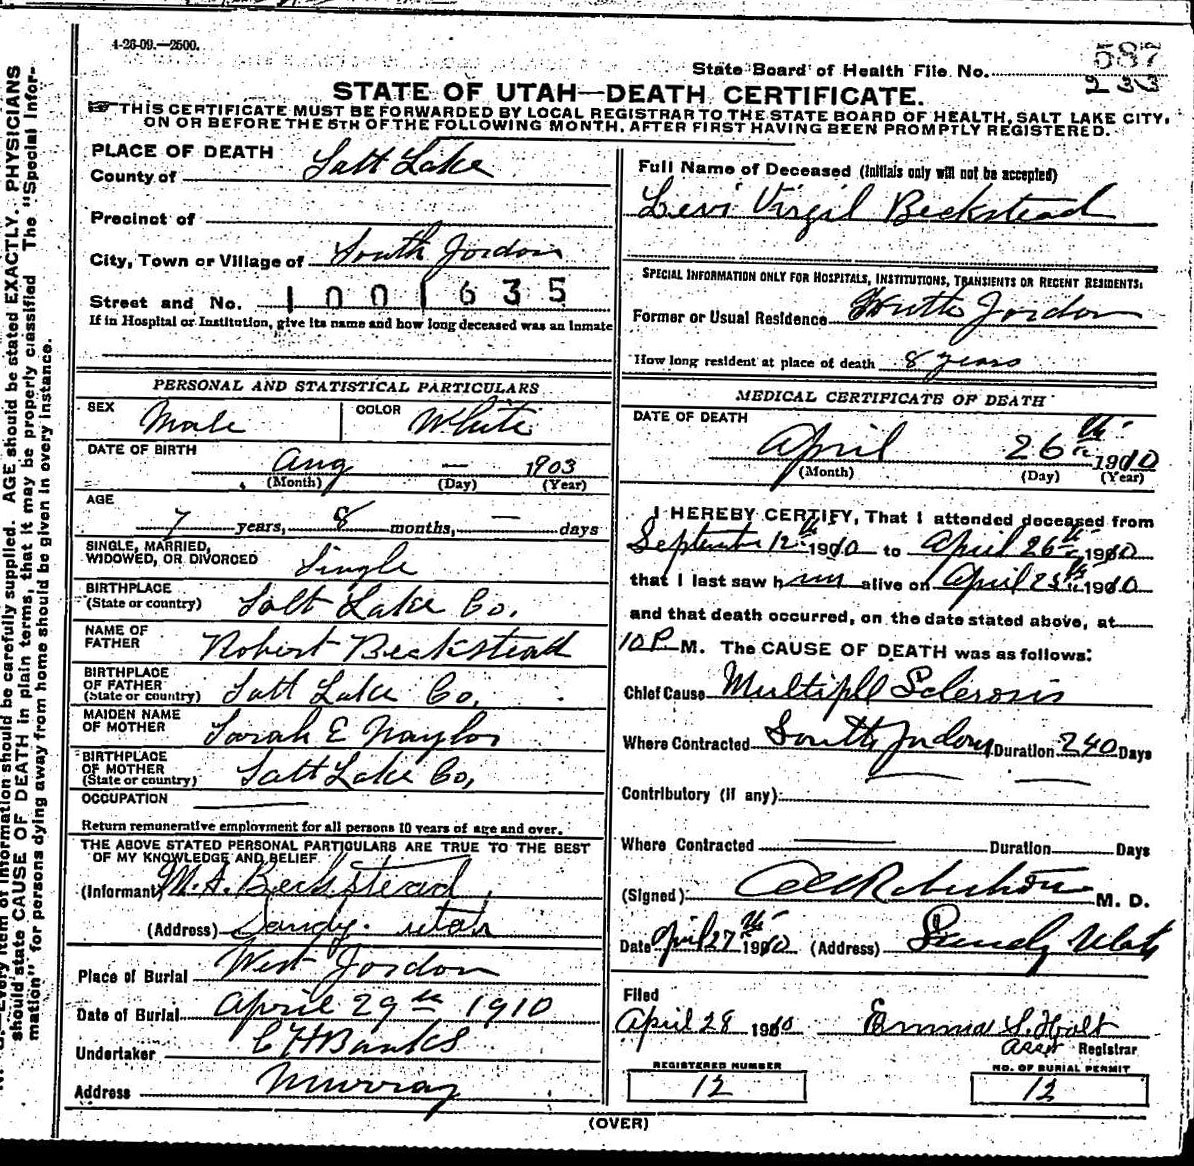 4-26-09.—2500.
State Board of Health File No. 587
233
STATE OF UTAH—DEATH CERTIFICATE.
THIS CERTIFICATE MUST BE FORWARDED BY LOCAL REGISTRAR TO THE STATE BOARD OF HEALTH, SALT LAKE CITY,
ON OR BEFORE THE 5TH OF THE FOLLOWING MONTH, AFTER FIRST HAVING BEEN PROMPTLY REGISTERED.
PLACE OF DEATH
County of Salt Lake
Precinct of
City, Town or Village of South Jordon
Street and No. 1001635
If in Hospital or Institution, give its name and how long deceased was an inmate
PERSONAL AND STATISTICAL PARTICULARS
SEX Male COLOR White
DATE OF BIRTH Aug — 1903
(Month) (Day) (Year)
AGE
7 years, 8 months, — days
SINGLE, MARRIED,
WIDOWED, OR DIVORCED Single
BIRTHPLACE
(State or country) Salt Lake Co.
NAME OF
FATHER Robert Beckstead
BIRTHPLACE
OF FATHER
(State or country) Salt Lake Co.
MAIDEN NAME
OF MOTHER Sarah E Naylor
BIRTHPLACE
OF MOTHER
(State or country) Salt Lake Co,
OCCUPATION
Return remunerative employment for all persons 10 years of age and over.
THE ABOVE STATED PERSONAL PARTICULARS ARE TRUE TO THE BEST
OF MY KNOWLEDGE AND BELIEF
(Informant) M. A. Beckstead
(Address) Sandy. Utah
Place of Burial West Jordon
Date of Burial April 29th 1910
Undertaker C H Banks
Address Murray
Full Name of Deceased (Initials only will not be accepted)
Levi Virgil Beckstead
SPECIAL INFORMATION ONLY FOR HOSPITALS, INSTITUTIONS, TRANSIENTS OR RECENT RESIDENTS:
Former or Usual Residence South Jordon
How long resident at place of death 8 years
MEDICAL CERTIFICATE OF DEATH
DATE OF DEATH
April 26th 1910
(Month) (Day) (Year)
I HEREBY CERTIFY, That I attended deceased from
September 12th 1910 to April 26th 1910
that I last saw him alive on April 25th 1910
and that death occurred, on the date stated above, at
10 P. M. The CAUSE OF DEATH was as follows:
Chief Cause Multiple Sclerosis
Where Contracted South Jordon Duration 240 Days
Contributory (if any):
Where Contracted Duration Days
(Signed) Robertson M. D.
Date April 27th 1910 (Address) Sandy Utah
Filed
April 28 1910 Emma S. Holt
Asst Registrar
REGISTERED NUMBER
12
NO. OF BURIAL PERMIT
12
(OVER)
Every item of information should be carefully supplied. AGE should be stated EXACTLY. PHYSICIANS
should state CAUSE OF DEATH in plain terms, that it may be properly classified. The "Special Infor-
mation" for persons dying away from home should be given in every instance.